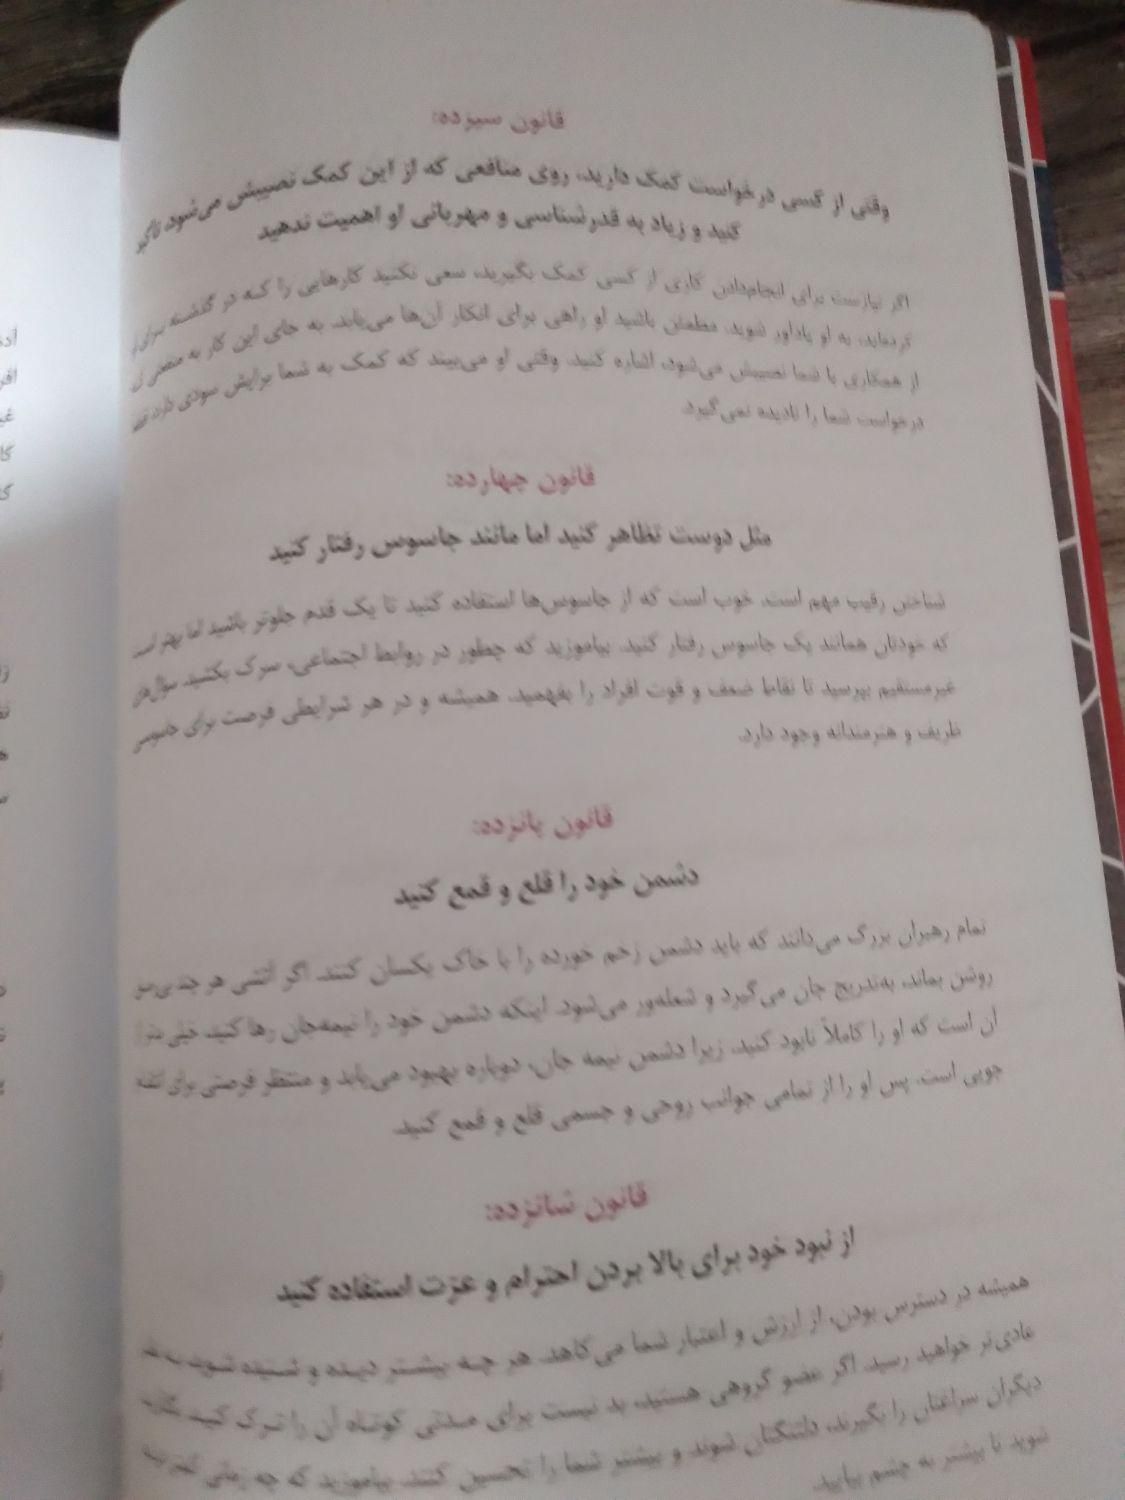 قانون سیزده:
وقتی از کسی درخواست کمک دارید، روی منافعی که از این کمک نصیبش می‌شود، تأکید
کنید و زیاد به قدرشناسی و مهربانی او اهمیت ندهید
اگر نیازست برای انجام‌دادن کاری از کسی کمک بگیرید، سعی نکنید کارهایی را که در گذشته برای او
کرده‌اید، به او یادآور شوید. مطمئن باشید او راهی برای انکار آن‌ها می‌یابد. به جای این کار به منفعتی که
از همکاری با شما نصیبش می‌شود، اشاره کنید. وقتی او می‌بیند که کمک به شما برایش سودی دارد،
درخواست شما را نادیده نمی‌گیرد.
قانون چهارده:
مثل دوست تظاهر کنید اما مانند جاسوس رفتار کنید
شناختن رقیب مهم است. خوب است که از جاسوس‌ها استفاده کنید تا یک قدم جلوتر باشید اما بهتر است
که خودتان همانند یک جاسوس رفتار کنید. بیاموزید که چطور در روابط اجتماعی، سرک بکشید. سؤال‌های
غیرمستقیم بپرسید تا نقاط ضعف و قوت افراد را بفهمید. همیشه و در هر شرایطی فرصت برای جاسوسی
ظریف و هنرمندانه وجود دارد.
قانون پانزده:
دشمن خود را قلع و قمع کنید
تمام رهبران بزرگ می‌دانند که باید دشمن زخم خورده را با خاک یکسان کنند. اگر آتشی هر چند
روشن بماند، به‌تدریج جان می‌گیرد و شعله‌ور می‌شود. اینکه دشمن خود را نیمه‌جان رها کنید، خیلی
آن است که او را کاملاً نابود کنید. زیرا دشمن نیمه جان، دوباره بهبود می‌یابد و منتظر فرصتی برای
جویی است. پس او را از تمامی جوانب روحی و جسمی قلع و قمع کنید.
قانون شانزده:
از نبود خود برای بالا بردن احترام و عزت استفاده کنید
همیشه در دسترس بودن، از ارزش و اعتبار شما می‌کاهد. هر چه بیشتر دیده و شنیده شوید، به
عادی‌تر خواهید رسید. اگر عضو گروهی هستید، بد نیست برای مدتی کوتاه آن را ترک کنید.
دیگران سراغتان را بگیرند، دلتنگتان شوند و بیشتر شما را تحسین کنند. بیاموزید که چه زمانی
شوید تا بیشتر به چشم بیایید.